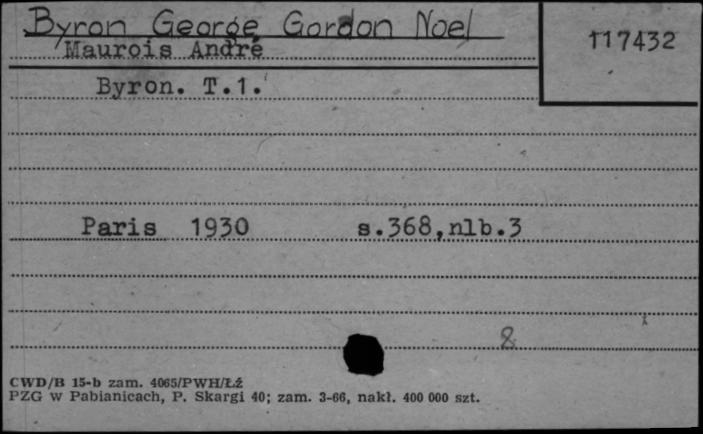 Byron George Gordon Noel
117432
Maurois André
Byron. T.1.
Paris 1930 s.368,nlb.3
8
CWD/B 15-b zam. 4065/PWH/Łż
PZG w Pabianicach, P. Skargi 40; zam. 3-66, nakł. 400 000 szt.